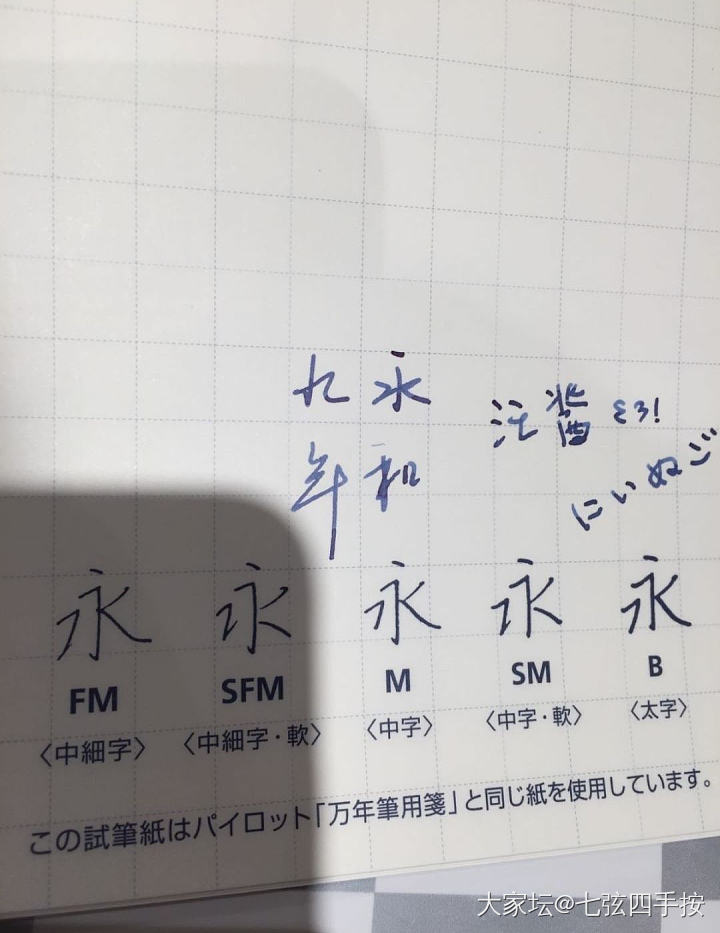 永 和
九 年
にいぬご
永 永 永 永 永
FM SFM M SM B
〈中細字〉 〈中細字・軟〉 〈中字〉 〈中字・軟〉 〈太字〉
この試筆紙はパイロット「万年筆用箋」と同じ紙を使用しています。
大家坛@七弦四手按